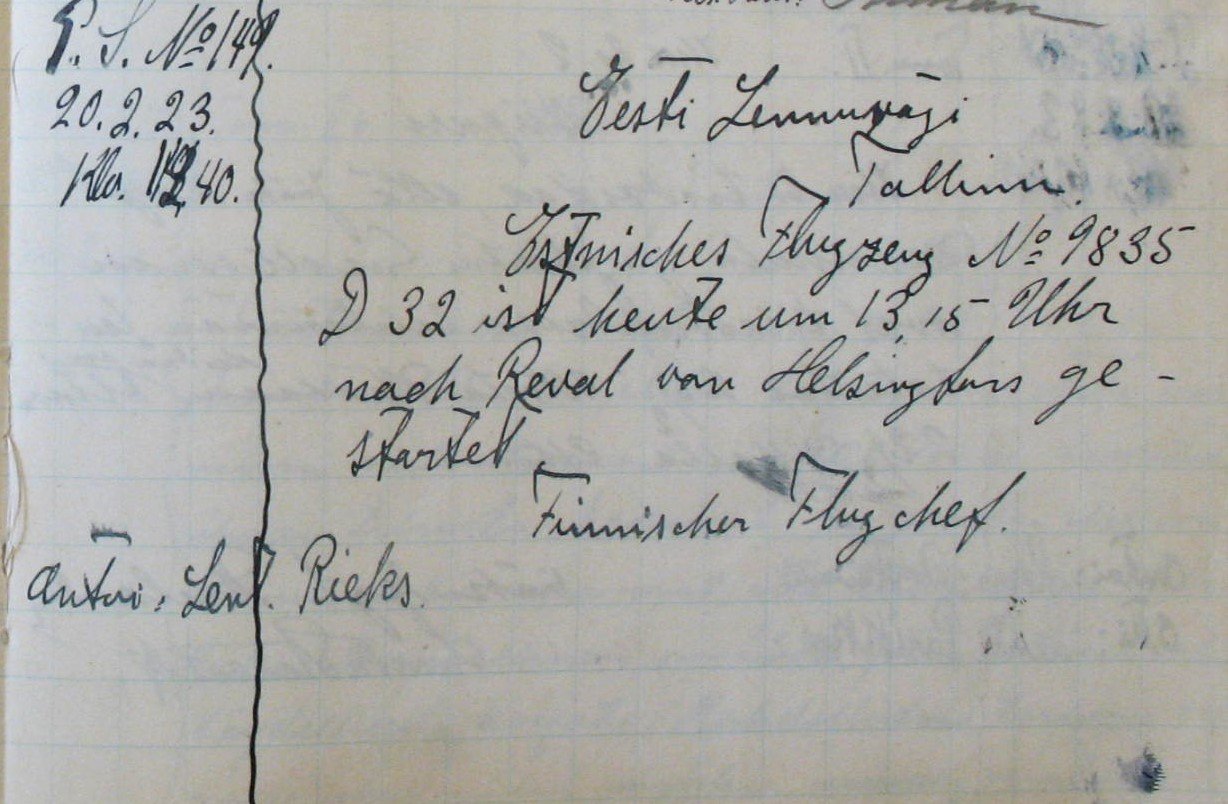 P. S. № 149.
20.2.23.
Klo. 12,40.
Eesti Lennuvägi
Tallinn.
Estnisches Flugzeug № 9835
D 32 ist heute um 13,15 Uhr
nach Reval von Helsingfors ge-
startet
Finnischer Flugchef.
Antoi: Leut. Rieks.